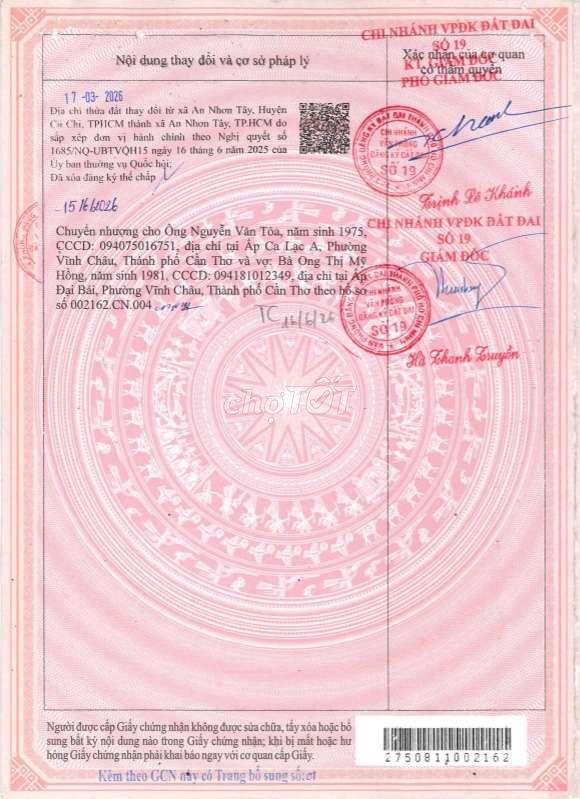 Nội dung thay đổi và cơ sở pháp lý
Xác nhận của cơ quan
có thẩm quyền
CHI NHÁNH VPĐK ĐẤT ĐAI
SỐ 19
KT. GIÁM ĐỐC
PHÓ GIÁM ĐỐC
17 -03- 2026
Địa chỉ thửa đất thay đổi từ xã An Nhơn Tây, Huyện
Củ Chi, TPHCM thành xã An Nhơn Tây, TP.HCM do
sắp xếp đơn vị hành chính theo Nghị quyết số
1685/NQ-UBTVQH15 ngày 16 tháng 6 năm 2025 của
Ủy ban thường vụ Quốc hội;
Đã xóa đăng ký thế chấp
CHI NHÁNH
VĂN PHÒNG
ĐĂNG KÝ ĐẤT ĐAI
SỐ 19
Trịnh Lê Khánh
15/6/2026
Chuyển nhượng cho Ông Nguyễn Văn Tỏa, năm sinh 1975,
CCCD: 094075016751, địa chỉ tại Ấp Ca Lạc A, Phường
Vĩnh Châu, Thành phố Cần Thơ và vợ: Bà Ong Thị Mỹ
Hồng, năm sinh 1981, CCCD: 094181012349, địa chỉ tại Ấp
Đại Bái, Phường Vĩnh Châu, Thành phố Cần Thơ theo hồ sơ
số 002162.CN.004
TC 16/6/26
CHI NHÁNH VPĐK ĐẤT ĐAI
SỐ 19
GIÁM ĐỐC
CHI NHÁNH
VĂN PHÒNG
ĐĂNG KÝ ĐẤT ĐAI
SỐ 19
Hà Thanh Truyền
chợTỐT
Người được cấp Giấy chứng nhận không được sửa chữa, tẩy xóa hoặc bổ
sung bất kỳ nội dung nào trong Giấy chứng nhận; khi bị mất hoặc hư
hỏng Giấy chứng nhận phải khai báo ngay với cơ quan cấp Giấy.
2750811002162
Kèm theo GCN này có Trang bổ sung số: 01